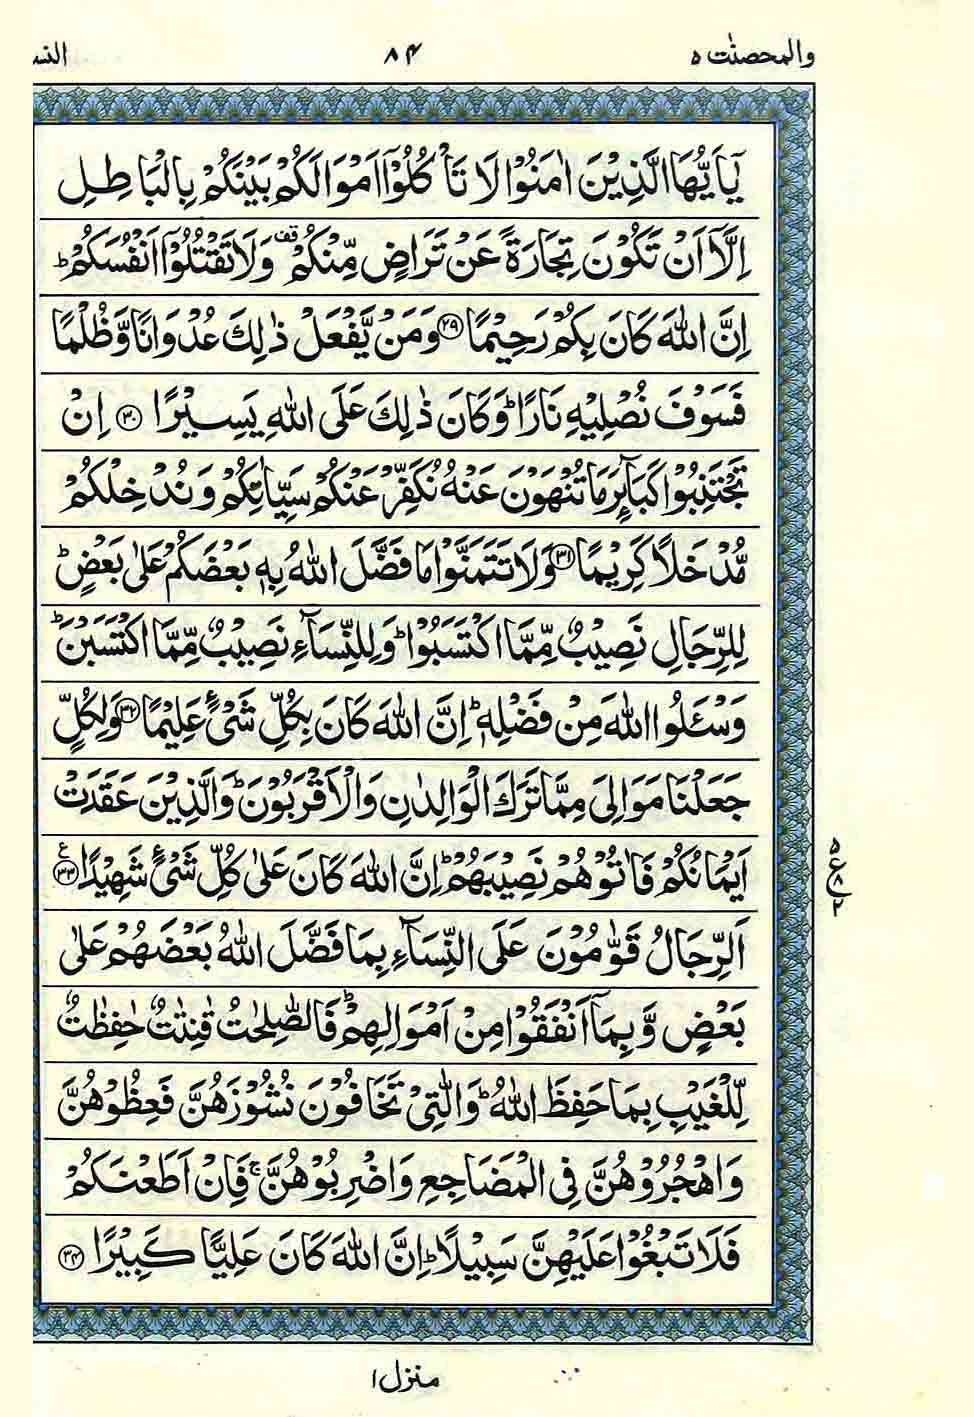 والمحصنٰت ۵
۸۴
النس
يٰٓاَيُّهَا الَّذِيْنَ اٰمَنُوْا لَا تَاْكُلُوْٓا اَمْوَالَكُمْ بَيْنَكُمْ بِالْبَاطِلِ
اِلَّآ اَنْ تَكُوْنَ تِجَارَةً عَنْ تَرَاضٍ مِّنْكُمْ ۟قف وَلَا تَقْتُلُوْٓا اَنْفُسَكُمْ ؕ
اِنَّ اللّٰهَ كَانَ بِكُمْ رَحِيْمًا ﴿۲۹﴾ وَمَنْ يَّفْعَلْ ذٰلِكَ عُدْوَانًا وَّظُلْمًا
فَسَوْفَ نُصْلِيْهِ نَارًا ؕ وَكَانَ ذٰلِكَ عَلَى اللّٰهِ يَسِيْرًا ﴿۳۰﴾ اِنْ
تَجْتَنِبُوْا كَبَآئِرَ مَا تُنْهَوْنَ عَنْهُ نُكَفِّرْ عَنْكُمْ سَيِّاٰتِكُمْ وَنُدْخِلْكُمْ
مُّدْخَلًا كَرِيْمًا ﴿۳۱﴾ وَلَا تَتَمَنَّوْا مَا فَضَّلَ اللّٰهُ بِهٖ بَعْضَكُمْ عَلٰى بَعْضٍ ؕ
لِلرِّجَالِ نَصِيْبٌ مِّمَّا اكْتَسَبُوْا ؕ وَلِلنِّسَآءِ نَصِيْبٌ مِّمَّا اكْتَسَبْنَ ؕ
وَسْـَٔلُوا اللّٰهَ مِنْ فَضْلِهٖ ؕ اِنَّ اللّٰهَ كَانَ بِكُلِّ شَىْءٍ عَلِيْمًا ﴿۳۲﴾ وَلِكُلٍّ
جَعَلْنَا مَوَالِىَ مِمَّا تَرَكَ الْوَالِدٰنِ وَالْاَقْرَبُوْنَ ؕ وَالَّذِيْنَ عَقَدَتْ
اَيْمَانُكُمْ فَاٰتُوْهُمْ نَصِيْبَهُمْ ؕ اِنَّ اللّٰهَ كَانَ عَلٰى كُلِّ شَىْءٍ شَهِيْدًا ﴿۳۳﴾ ع
۵ ع ۸ ۲
اَلرِّجَالُ قَوّٰمُوْنَ عَلَى النِّسَآءِ بِمَا فَضَّلَ اللّٰهُ بَعْضَهُمْ عَلٰى
بَعْضٍ وَّبِمَآ اَنْفَقُوْا مِنْ اَمْوَالِهِمْ ؕ فَالصّٰلِحٰتُ قٰنِتٰتٌ حٰفِظٰتٌ
لِّلْغَيْبِ بِمَا حَفِظَ اللّٰهُ ؕ وَالّٰتِىْ تَخَافُوْنَ نُشُوْزَهُنَّ فَعِظُوْهُنَّ
وَاهْجُرُوْهُنَّ فِى الْمَضَاجِعِ وَاضْرِبُوْهُنَّ ۚ فَاِنْ اَطَعْنَكُمْ
فَلَا تَبْغُوْا عَلَيْهِنَّ سَبِيْلًا ؕ اِنَّ اللّٰهَ كَانَ عَلِيًّا كَبِيْرًا ﴿۳۴﴾
منزل ۱